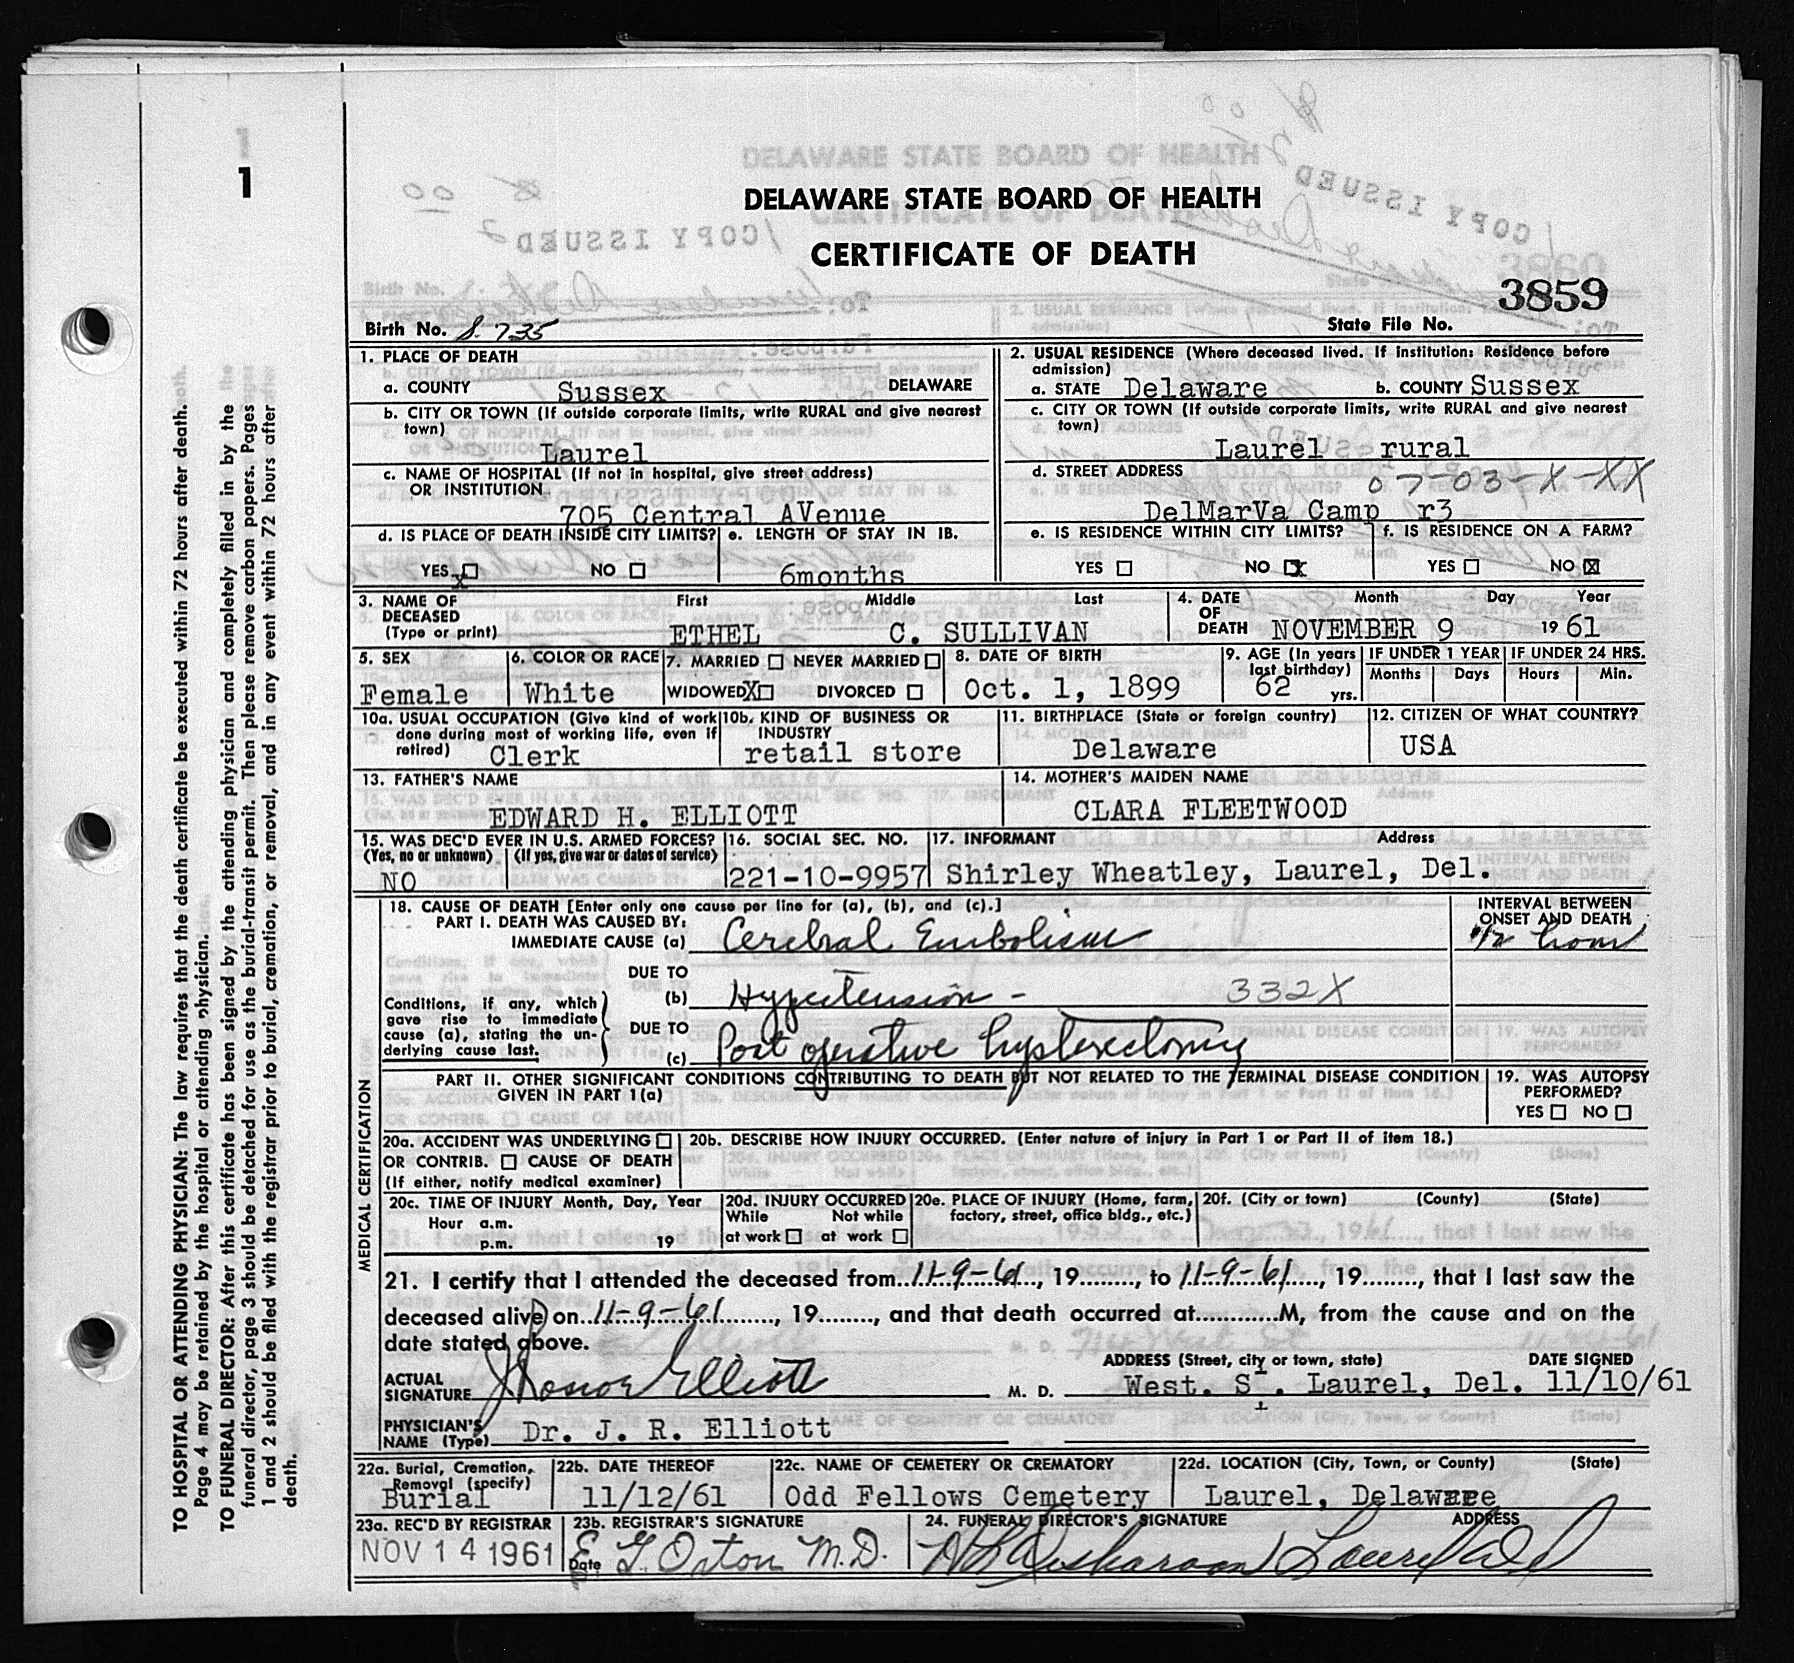 1
DELAWARE STATE BOARD OF HEALTH
CERTIFICATE OF DEATH
3859
Birth No. S. 735 State File No.
1. PLACE OF DEATH
a. COUNTY Sussex DELAWARE
b. CITY OR TOWN (If outside corporate limits, write RURAL and give nearest town)
Laurel
c. NAME OF HOSPITAL (If not in hospital, give street address) OR INSTITUTION
705 Central AVenue
d. IS PLACE OF DEATH INSIDE CITY LIMITS? YES x NO
e. LENGTH OF STAY IN IB.
6months
2. USUAL RESIDENCE (Where deceased lived. If institution: Residence before admission)
a. STATE Delaware b. COUNTY Sussex
c. CITY OR TOWN (If outside corporate limits, write RURAL and give nearest town)
Laurel rural
d. STREET ADDRESS 07-03-X-XX
DelMarVa Camp r3
e. IS RESIDENCE WITHIN CITY LIMITS? YES NO X
f. IS RESIDENCE ON A FARM? YES NO X
3. NAME OF DECEASED (Type or print) First Middle Last
ETHEL C. SULLIVAN
4. DATE OF DEATH Month Day Year
NOVEMBER 9 19 61
5. SEX
Female
6. COLOR OR RACE
White
7. MARRIED NEVER MARRIED
WIDOWED X DIVORCED
8. DATE OF BIRTH
Oct. 1, 1899
9. AGE (In years last birthday)
62 yrs.
IF UNDER 1 YEAR Months Days
IF UNDER 24 HRS. Hours Min.
10a. USUAL OCCUPATION (Give kind of work done during most of working life, even if retired)
Clerk
10b. KIND OF BUSINESS OR INDUSTRY
retail store
11. BIRTHPLACE (State or foreign country)
Delaware
12. CITIZEN OF WHAT COUNTRY?
USA
13. FATHER'S NAME
EDWARD H. ELLIOTT
14. MOTHER'S MAIDEN NAME
CLARA FLEETWOOD
15. WAS DEC'D EVER IN U.S. ARMED FORCES?
(Yes, no or unknown) (If yes, give war or dates of service)
NO
16. SOCIAL SEC. NO.
221-10-9957
17. INFORMANT Address
Shirley Wheatley, Laurel, Del.
18. CAUSE OF DEATH [Enter only one cause per line for (a), (b), and (c).]
PART I. DEATH WAS CAUSED BY:
IMMEDIATE CAUSE (a) Cerebral Embolism
INTERVAL BETWEEN ONSET AND DEATH
1/2 hour
Conditions, if any, which gave rise to immediate cause (a), stating the underlying cause last.
DUE TO (b) Hypertension - 332X
DUE TO (c) Post operative hysterectomy
PART II. OTHER SIGNIFICANT CONDITIONS CONTRIBUTING TO DEATH BUT NOT RELATED TO THE TERMINAL DISEASE CONDITION GIVEN IN PART 1(a)
19. WAS AUTOPSY PERFORMED?
YES NO
20a. ACCIDENT WAS UNDERLYING
OR CONTRIB. CAUSE OF DEATH
(If either, notify medical examiner)
20b. DESCRIBE HOW INJURY OCCURRED. (Enter nature of injury in Part 1 or Part II of item 18.)
20c. TIME OF INJURY Month, Day, Year
Hour a.m.
p.m. 19
20d. INJURY OCCURRED
While at work Not while at work
20e. PLACE OF INJURY (Home, farm, factory, street, office bldg., etc.)
20f. (City or town) (County) (State)
MEDICAL CERTIFICATION
21. I certify that I attended the deceased from 11-9-61, 19......., to 11-9-61, 19......., that I last saw the
deceased alive on 11-9-61, 19......., and that death occurred at............M, from the cause and on the
date stated above.
ACTUAL SIGNATURE J Roscoe Elliott M. D.
ADDRESS (Street, city or town, state) DATE SIGNED
West. St. Laurel, Del. 11/10/61
PHYSICIAN'S NAME (Type) Dr. J. R. Elliott
22a. Burial, Cremation, Removal (specify)
Burial
22b. DATE THEREOF
11/12/61
22c. NAME OF CEMETERY OR CREMATORY
Odd Fellows Cemetery
22d. LOCATION (City, Town, or County) (State)
Laurel, Delaware
23a. REC'D BY REGISTRAR
NOV 14 1961
23b. REGISTRAR'S SIGNATURE
Date E. G. Orton M.D.
24. FUNERAL DIRECTOR'S SIGNATURE ADDRESS
Laurel Del
TO HOSPITAL OR ATTENDING PHYSICIAN: The law requires that the death certificate be executed within 72 hours after death.
Page 4 may be retained by the hospital or attending physician.
TO FUNERAL DIRECTOR: After this certificate has been signed by the attending physician and completely filled in by the
funeral director, page 3 should be detached for use as the burial-transit permit. Then please remove carbon papers. Pages
1 and 2 should be filed with the registrar prior to burial, cremation, or removal, and in any event within 72 hours after
death.